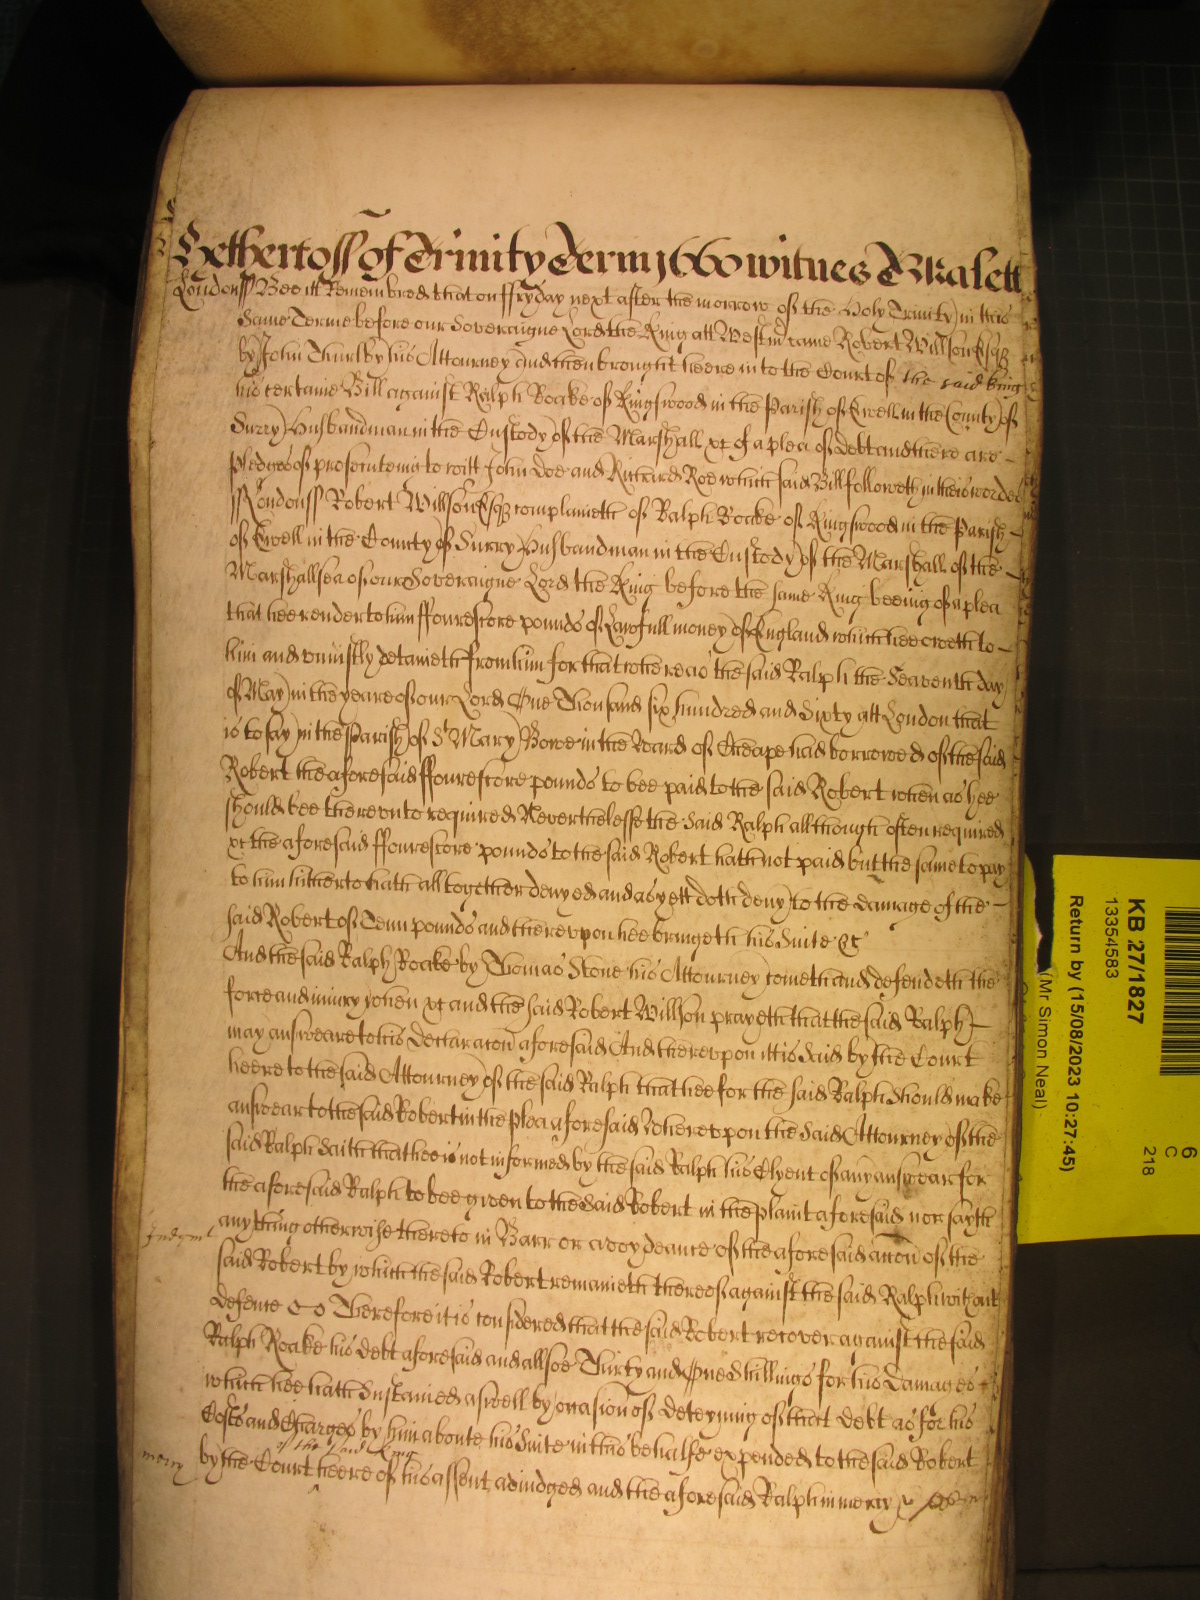 Yet hertoff of Trinity Terme 1660 witnes T Malett
Londonss Bee itt Remembred that on ffryday next after the morrow of the Holy Trinity in this
same Terme before our Soveraigne Lord the King att Westm came Robert Willson Esqz
by John Thurlby his Attourney And then brought heere in to the Court of the said king
his certaine Bill against Ralph Roake of Kingswood in the Parish of Ewell in the County of
Surry Husbandman in the Custody of the Marshall xc of a plea of debt and there are
Pledges of prosecuteing to witt John Doe and Richard Roe which said Bill followeth in theis wordes
ss Londonss Robert Willson Esqz complaineth of Ralph Roake of Kingswood in the Parish
of Ewell in the County of Surry Husbandman in the Custody of the Marshall of the
Marshallsea of our Soveraigne Lord the King before the same King beeing of a plea
that hee render to him ffourescore pounds of Lawfull money of England which hee oweth to
him and uniustly detaineth from him for that whereas the said Ralph the Seaventh day
of May in the yeare of our Lord One Thousand six hundred and Sixty att London that
is to say in the Parish of St Mary Bowe in the Ward of Cheape had borrowed of the said
Robert the aforesaid ffourescore pounds to bee paid to the said Robert when as hee
should bee thereunto required Neverthelesse the said Ralph allthough often required
xc the aforesaid ffourescore pounds to the said Robert hath not paid but the same to pay
to him hitherto hath alltogether denyed and as yett doth deny to the damage of the
said Robert of Tenn pounds and thereupon hee bringeth his Suite &c
And the said Ralph Roake by Thomas Stone his Attourney cometh and defendeth the
force and iniury when xc and the said Robert Willson prayeth that the said Ralph
may answeare to his Declaracon aforesaid And thereupon itt is said by the Court
heere to the said Attourney of the said Ralph that hee for the said Ralph should make
answear to the said Robert in the Plea aforesaid Whereupon the said Attourney of the
said Ralph saith that hee is not informed by the said Ralph his Clyent of any answear for
the aforesaid Ralph to bee given to the said Robert in the plaint aforesaid nor sayth
any thing otherwise thereto in Barr or avoydeance of the aforesaid accon of the
Judgmt
said Robert by which the said Robert remaineth thereof against the said Ralph without
defence &c Therefore it is considered that the said Robert recover against the said
Ralph Roake his debt aforesaid and allsoe Thirty and One shillings for his Damages
which hee hath Sustained aswell by occasion of deteyning of that debt as for his
Costs and Charges by him aboute his Suite in this behalfe expended to the said Robert
of the said King
mercy by the Court heere of his assent adiudged and the aforesaid Ralph in mercy
KB 27/1827
13354583
Return by (15/08/2023 10:27:45)
(Mr Simon Neal)
6
C
218